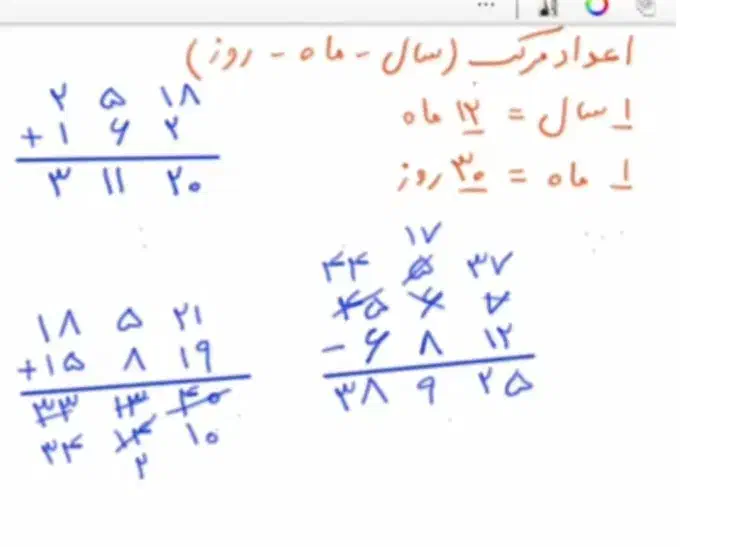 اعداد مرکب (سال - ماه - روز)
۱ سال = ۱۲ ماه
۱ ماه = ۳۰ روز
۲ ۵ ۱۸
+ ۱ ۶ ۲
۳ ۱۱ ۲۰
۱۷
۴۴ ۵ ۳۷
۴۵ ۶ ۷
- ۶ ۸ ۱۲
۳۸ ۹ ۲۵
۱۸ ۵ ۲۱
+ ۱۵ ۸ ۱۹
۳۳ ۱۳ ۴۰
۳۴ ۱۴ ۱۰
۲